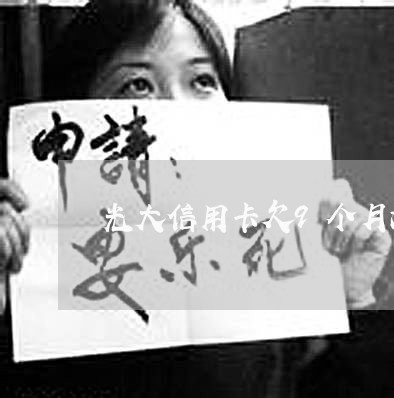 申請：
光大信用卡欠9个月
安乐死